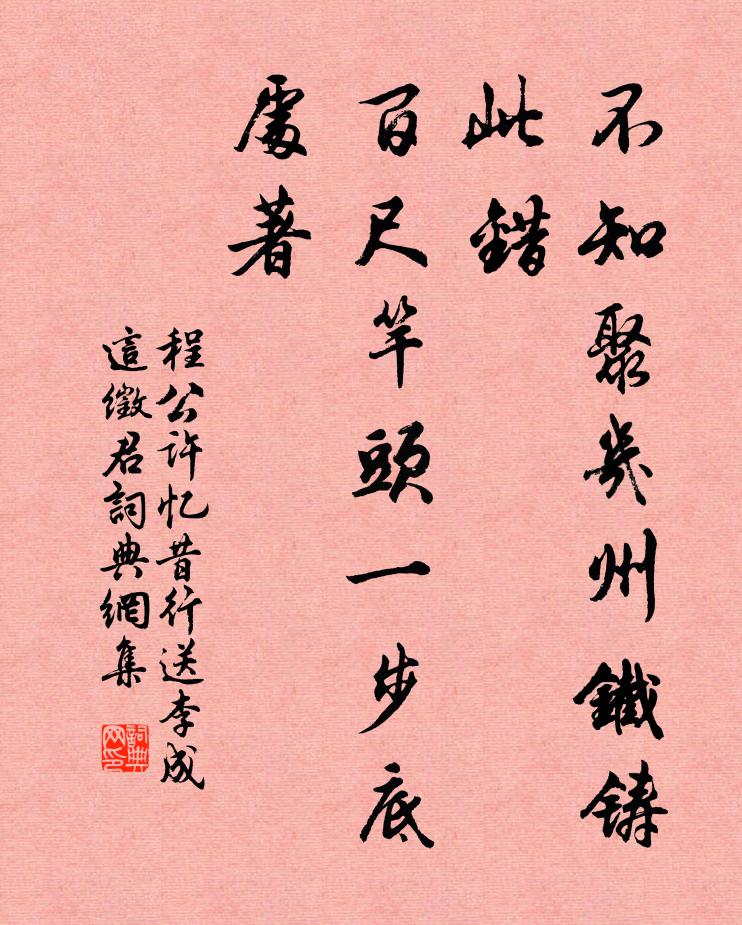 不知聚幾州鐵鑄
此錯
百尺竿頭一步底
處著
程公許忆昔行送李成
這徵君詞典網集
詞典网印